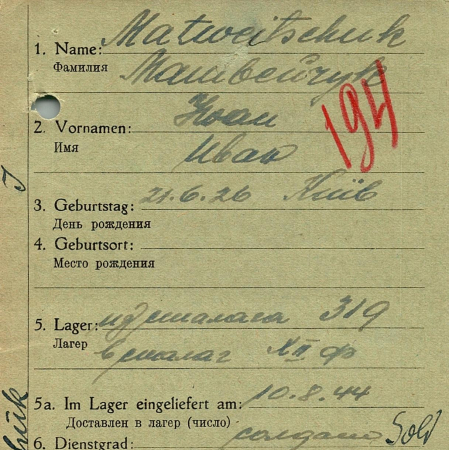 1. Name: Matweitschuk
Фамилия Матвейчук
2. Vornamen: Iwan
Имя Иван
194
3. Geburtstag: 21.6.26 Київ
День рождения
4. Geburtsort:
Место рождения
5. Lager: из сталага 319
Лагер в сталаг XII Ф
5a. Im Lager eingeliefert am: 10.8.44
Доставлен в лагер (число)
6. Dienstgrad: солдат Sold